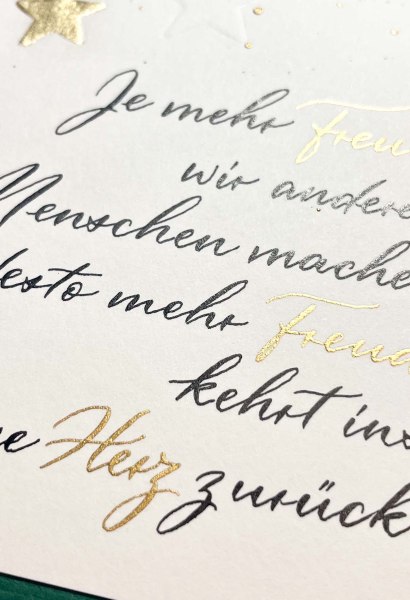 Je mehr Freu
wir andere
Menschen mache
desto mehr Freud
kehrt ins
ne Herz zurück